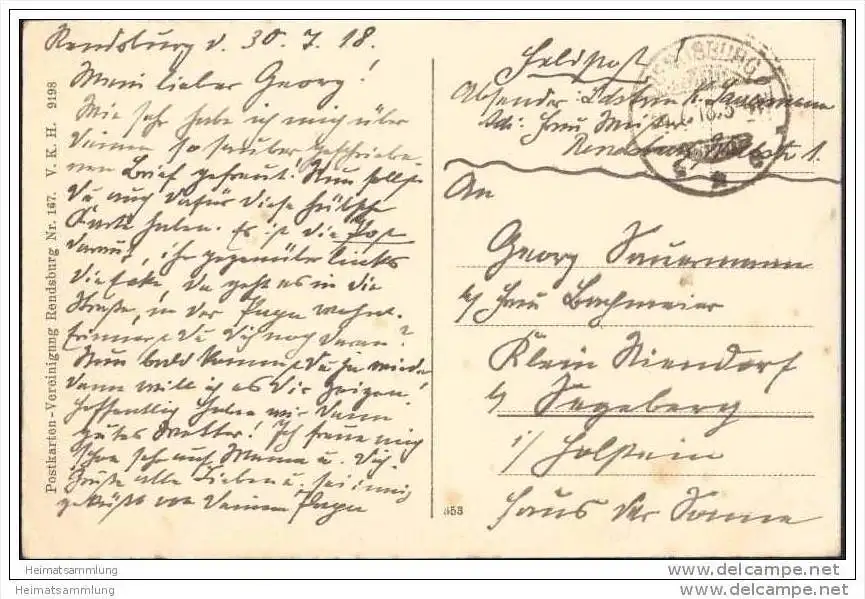 Rendsburg d. 30. 7. 18.
Mein lieber Georg!
Wie sehr habe ich mich über
Deinen so sauber geschriebe-
nen Brief gefreut! Nun sollst
Du auch dafür diese hübsche
Karte haben. Es ist die Post
darauf, ihr gegenüber links
die Ecke, da geht es in die
Straße, in der Papa wohnt.
Erinnerst Du Dich noch daran?
Nun bald kommst Du ja wieder
dann will ich es Dir zeigen!
Hoffentlich haben wir dann
gutes Wetter! Ich freue mich
schon sehr auf Mama u. Dich
Grüße alle Lieben u. sei innig
geküßt von Deinem Papa
Postkarten-Vereinigung Rendsburg Nr. 167. V. K. H. 9198
Feldpost!
Absender: Sauermann
Frau
Rendsburg 1.
RENDSBURG
An
Georg Sauermann
b/ Frau Bachmeier
Klein Niendorf
b/ Segeberg
i/ Holstein
Haus der Sonne
353
Heimatsammlung
Heimatsammlung
www.delcampe.net